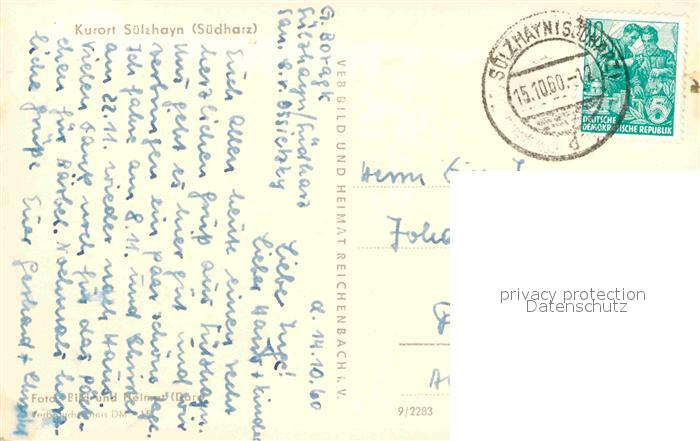 Kurort Sülzhayn (Südharz)
G. Boragk
Sülzhayn/Südharz
San. C.v. Ossietzky
d. 14.10.60
Liebe Inge!
Lieber Hans + Kinder
Euch allen heute einen recht
herzlichen Gruß aus Sülzhayn.
Uns geht es hier gut und wir
verbringen ein paar schöne Tage.
Ich fahre am 8.11. und
am 22.11. wieder nach Haus.
Vielen Dank noch für das
chen für Bärbel. Nochmals herz-
liche Grüße Euer Gerhard +
VEB BILD UND HEIMAT REICHENBACH i. V.
Foto: Bild und Heimat
Verbraucherpreis DM
9/2283
SÜLZHAYN (SÜDHARZ)
15.10.60
10
5
DEUTSCHE
DEMOKRATISCHE REPUBLIK
Herrn
privacy protection
Datenschutz